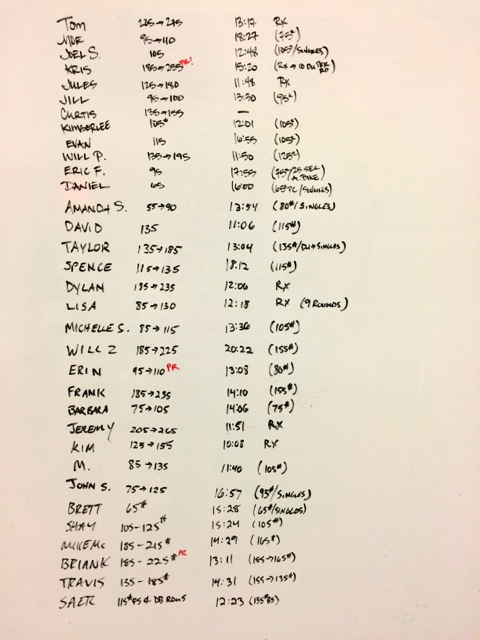 TOM 225→275 13:17 RX
MOR 95→110 18:27 (75#)
JOEL S. 105 12:48 (105#/SINGLES)
KRIS 185→255 PR! 15:20 (RX → 10 DU PER RD
JULES 125→180 11:48 RX
JILL 95→100 13:50 (95#)
CURTIS 135→155 —
KIMBERLEE 105# 12:01 (105#)
EVAN 115 16:55 (105#)
WILL P. 135→195 11:50 (125#)
ERIC F. 95 17:55 (75#/25 SEC A. BIKE)
DANIEL 65 16:00 (65#PC/SINGLES)
AMANDA S. 55→90 13:54 (80#/SINGLES)
DAVID 135 11:06 (115#)
TAYLOR 135→185 13:04 (135#/DU+SINGLES)
SPENCE 115→135 18:12 (115#)
DYLAN 185→235 12:06 RX
LISA 85→130 12:18 RX (9 ROUNDS)
MICHELLE S. 85→115 13:36 (105#)
WILL Z 185→225 20:22 (155#)
ERIN 95→110 PR 13:08 (80#)
FRANK 185→235 14:10 (155#)
BARBARA 75→105 14:06 (75#)
JEREMY 205→265 11:51 RX
KIM 125→155 10:08 RX
M. 85→135 11:40 (105#)
JOHN S. 75→125 16:57 (95#/SINGLES)
BRETT 65# 15:28 (65#/SINGLES)
SHAY 105-125# 15:24 (105#)
MIKE Mc 185-215# 14:29 (165#)
BRIAN K 185-225# PR 13:11 (185→165#)
TRAVIS 135-185# 14:31 (155→135#)
115#FS & DB ROWS 12:23 (135#BS)